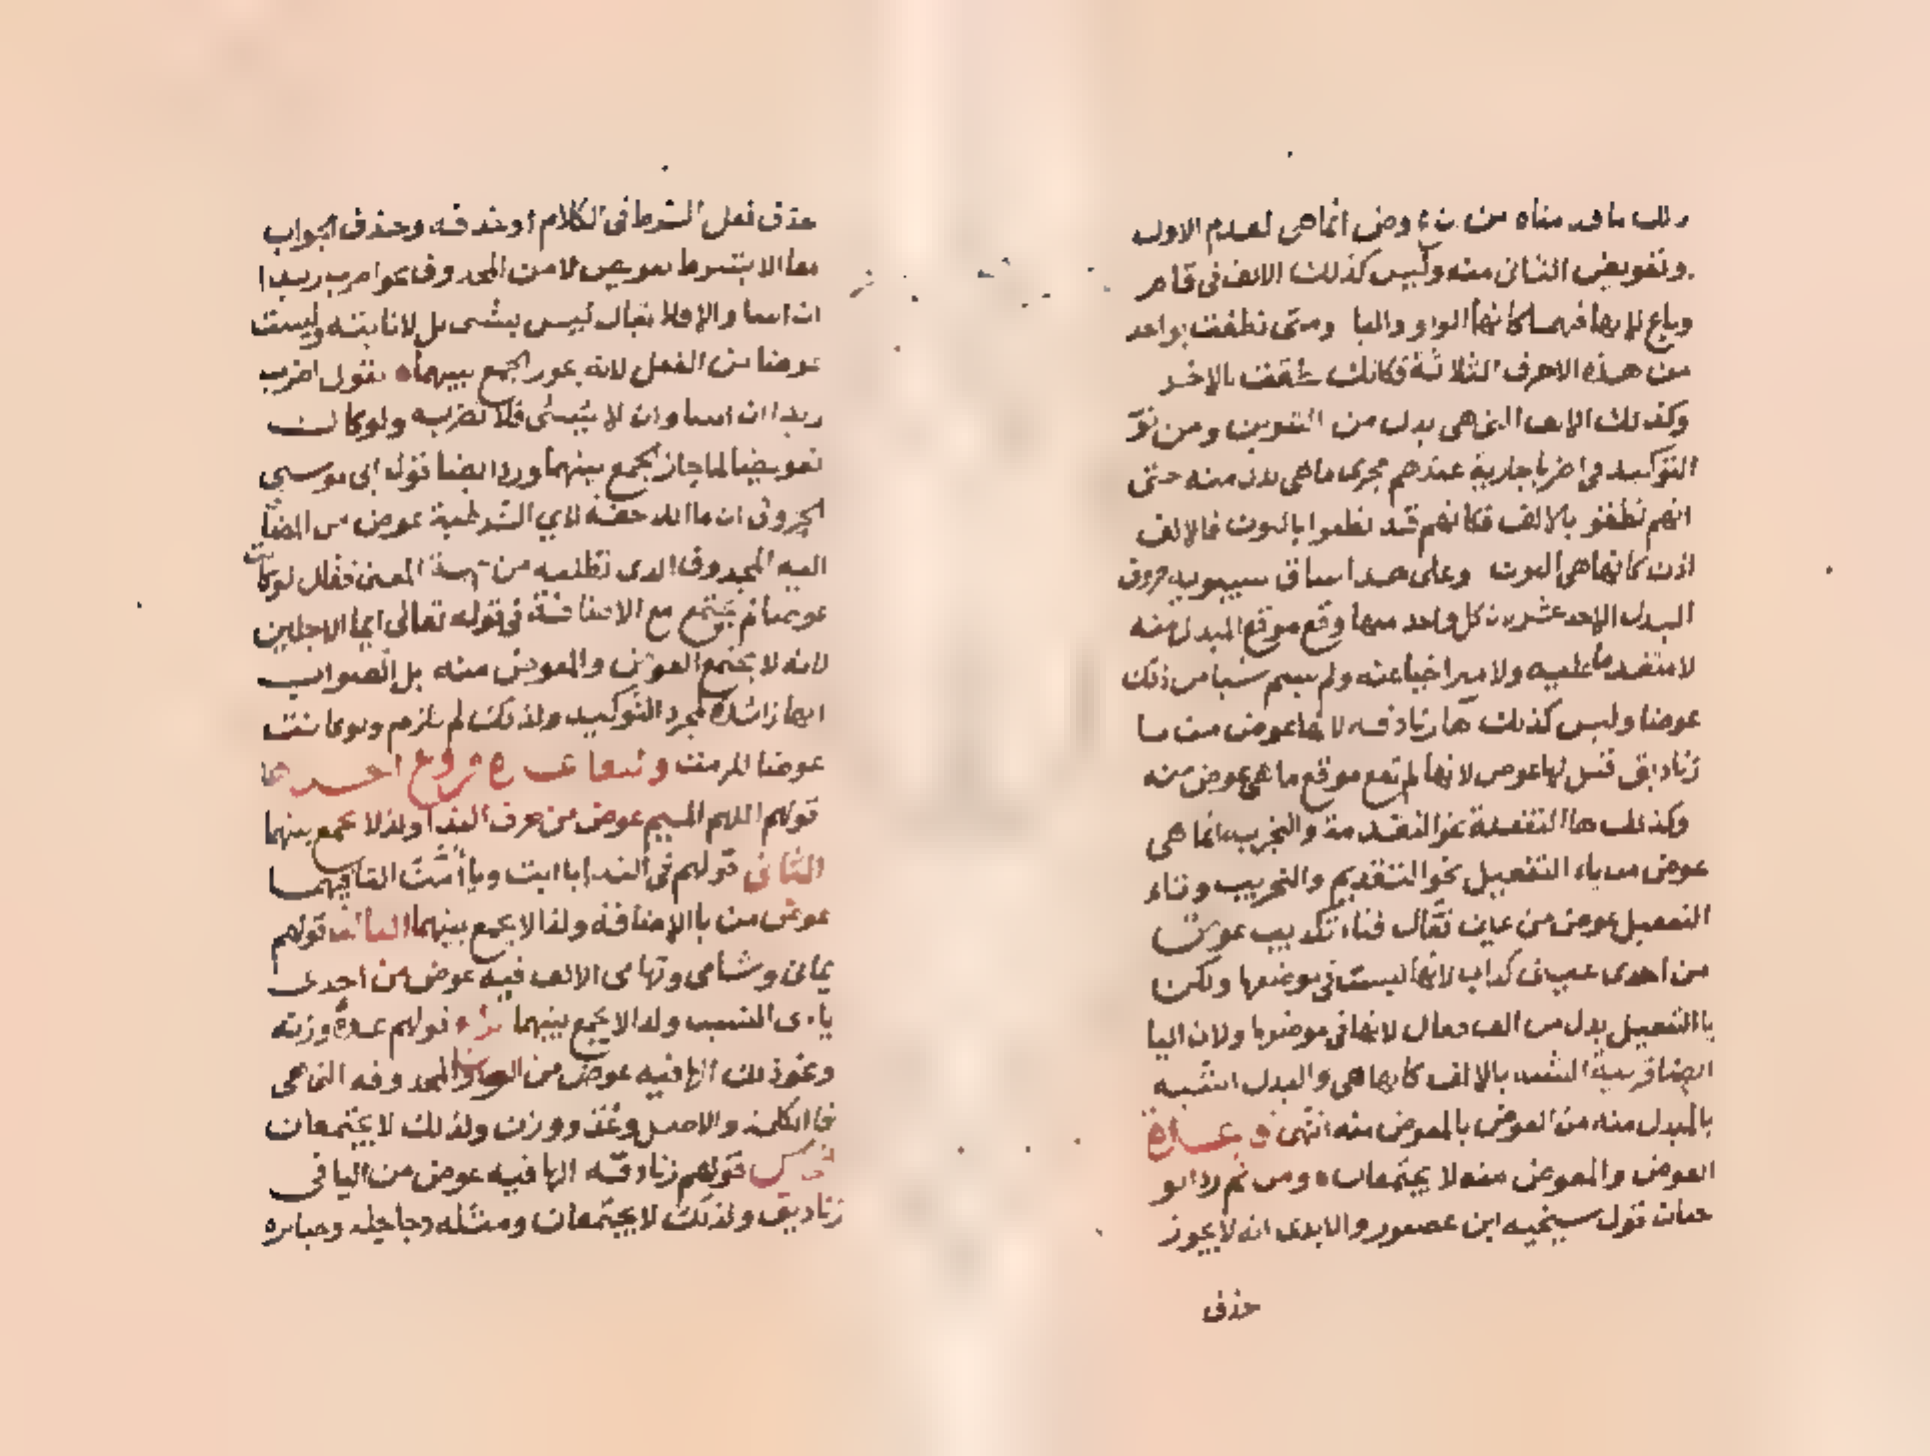 ذلك ما قدمناه من عوض انماهى لعدم الاول
وتعويض الثانى منه وليس كذلك الالف فى قام
وباع لانهما كانها الواو واليا ومتى نطقت بواحد
من هذه الاحرف الثلاثة فكانك نطقت بالاخر
وكذلك الالف التى هى بدل من التنوين ومن نون
التوكيد فى اضربا جارية عندهم مجرى ماهى بدل منه حتى
انهم نطقو بالالف فكانهم قد نطقوا بالنون فالالف
اذن كانهاهى النون وعلى هذا ساق سيبويه حروف
البدل الاحد عشر لان كل واحد منها وقع موقع المبدل منه
لا متقدما عليه ولا متراخيا عنه ولم يسم شيا من ذلك
عوضا وليس كذلك ها زنادقه لانهاعوض من يا
زناديق قيل لهاعوض لانها لم تقع موقع ماهى عوض منه
وكذلك ها التفعلة نحوالتقدمة والتجربة انما هى
عوض من ياء التفعيل نحو التقديم والتجريب وتاء
التفعيل عوض من عين فعال فتاء تكذيب عوض
من احدى عينى كذاب لانها ليست فى موضعها ولكن
يا التفعيل بدل من الف فعال لانها فى موضعها ولان اليا
ايضا قريبة الشبه بالالف كانها هى والبدل اشبه
بالمبدل منه من العوض بالمعوض منه انتهى قاعدة
العوض والمعوض منه لا يجتمعان ومن ثم رد ابو
حيان قول شيخيه ابن عصفور والابدى انه لا يجوز
حذف
حذف فعل الشرط فى الكلام او حذفه وحذف الجواب
معا الا بشرط تعويض لا من المحذوف نحو اضرب زيدا
ان اسا والافلا فقال ليس بشى بل لا نابته وليست
عوضا من الفعل لانه يجوز الجمع بينهما تقول اضرب
زيدا ان اسا وان لا يسئ فلا تضربه ولو كانت
تعويضا لما جاز الجمع بينهما ورد ايضا قوله ابى موسى
الجزولى ان ما اللاحقه لاي الشرطية عوض من المضاف
اليه المحذوف الذى تطلبه من جهة المعنى فقال لو كانت
عوضا لم تجتمع مع الاضافة فى قوله تعالى ايما الاجلين
لانه لا يجتمع العوض والمعوض منه بل الصواب
انها زائدة لمجرد التوكيد ولذلك لم تلزم ولو كانت
عوضا للزمت وتبعا عده فروع احدها
قولهم اللهم الميم عوض من حرف الندا ولذلا يجمع بينهما
الثانى قولهم فى الندا يا ابت ويا امت التا فيهما
عوض من يا الاضافة ولذا لا يجمع بينهما الثالث قولهم
يمانى وشامى وتهامى الالف فيه عوض من احدى
ياءى النسب ولذا لا يجمع بينهما قولهم عدة وزنه
ونحو ذلك الها فيه عوض من الواو المحذوفه التى هى
فا الكلمة والاصل وعد ووزن ولذلك لا يجتمعان
قولهم زنادقه الها فيه عوض من اليا فى
زناديق ولذلك لا يجتمعان ومثله دجاجله وجبابره